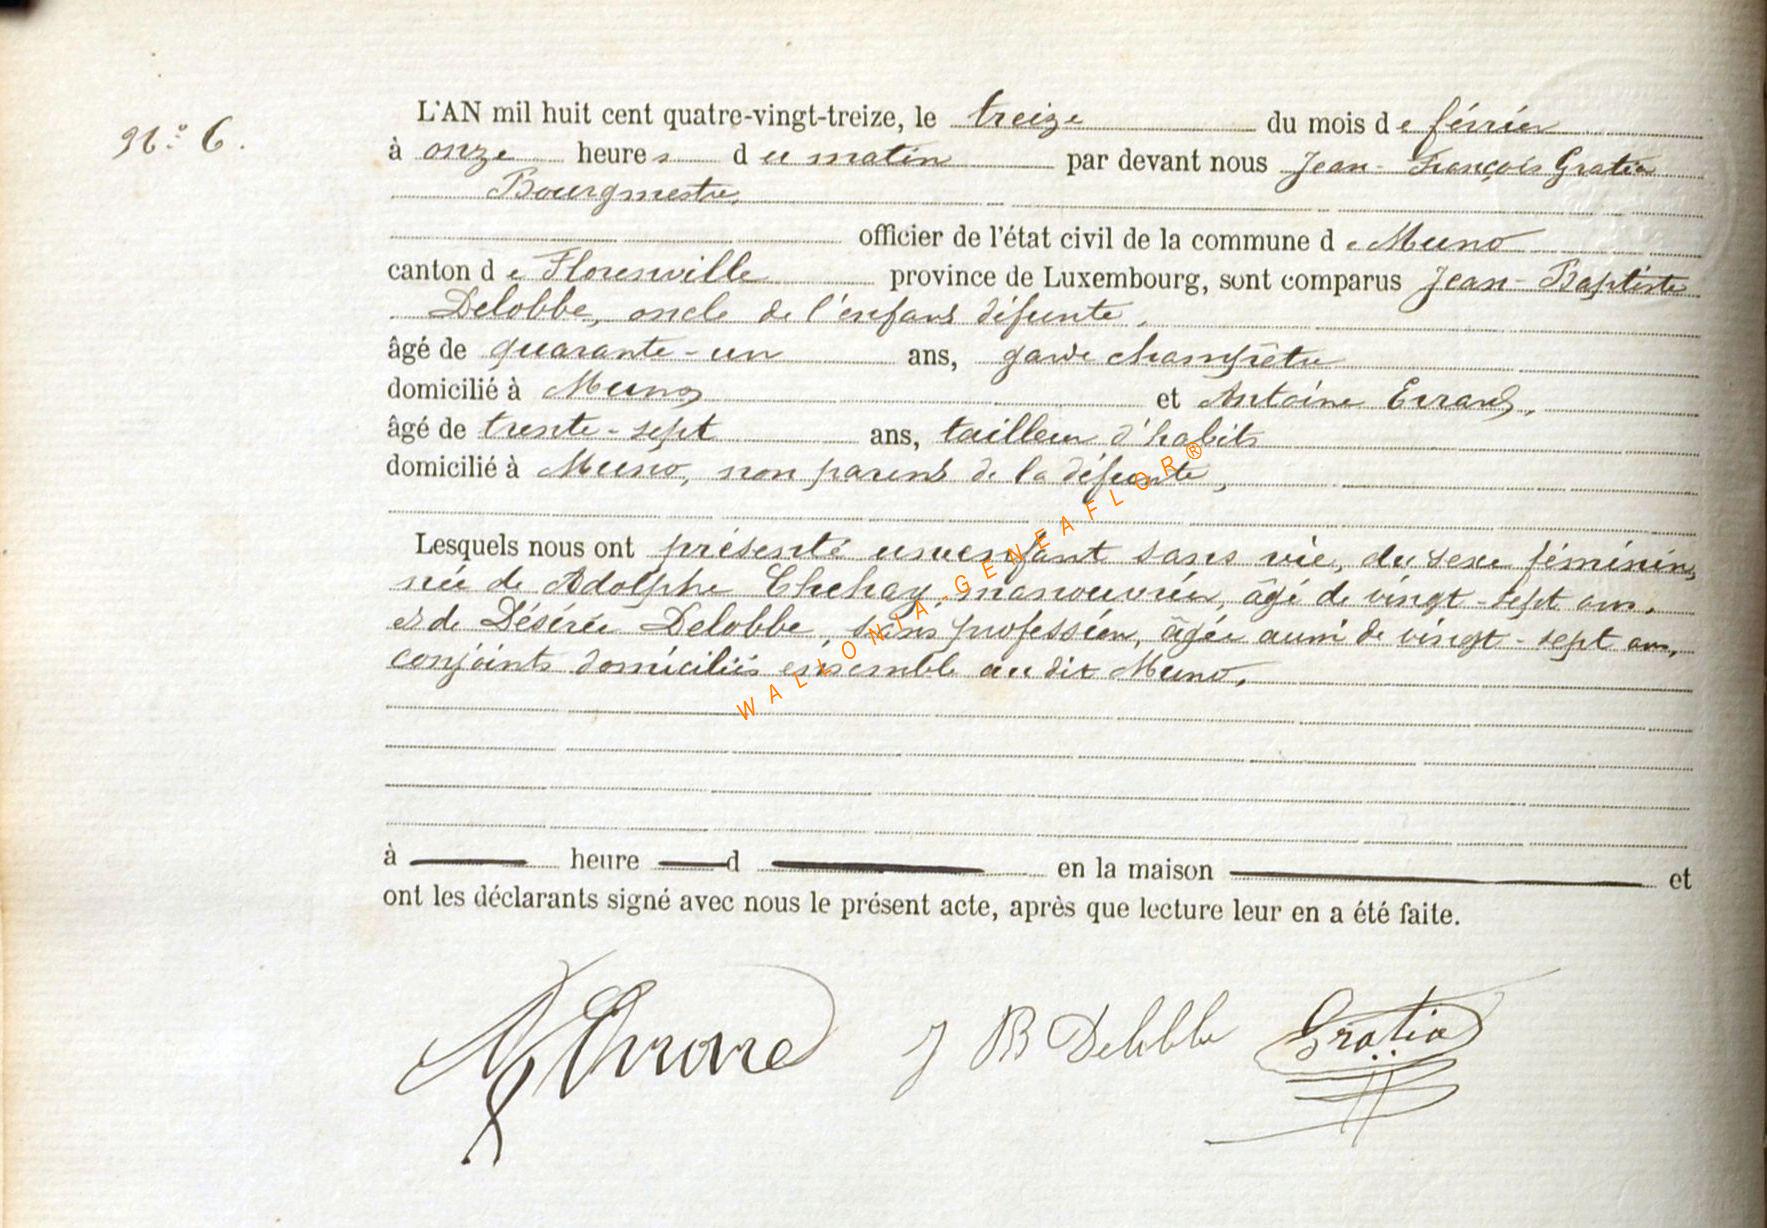 N.º 6.
L'AN mil huit cent quatre-vingt-treize, le treize du mois de février
à onze heures du matin par devant nous Jean-François Gratia
Bourgmestre,
officier de l'état civil de la commune de Muno
canton de Florenville province de Luxembourg, sont comparus Jean-Baptiste
Delobbe, oncle de l'enfant défunte,
âgé de quarante-un ans, garde champêtre
domicilié à Muno et Antoine Errard,
âgé de trente-sept ans, tailleur d'habits
domicilié à Muno, non parent de la défunte,
Lesquels nous ont présenté un enfant sans vie, du sexe féminin,
née de Adolphe Chehay, manouvrier, âgé de vingt-sept ans,
et de Désirée Delobbe, sans profession, âgée aussi de vingt-sept ans,
conjoints domiciliés ensemble au dit Muno,
à heure d en la maison et
ont les déclarants signé avec nous le présent acte, après que lecture leur en a été faite.
A Errard J B Delobbe Gratia
WALLONIA-GENEAFLOR®